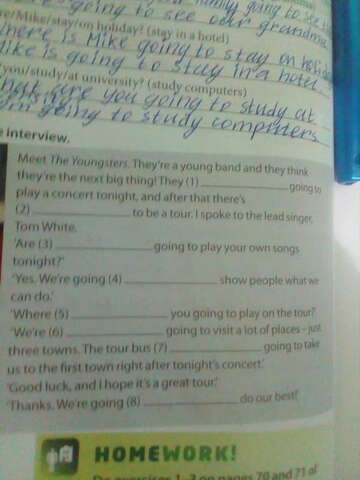 going to see our grandma
re/Mike/stay/on holiday? (stay in a hotel)
here is Mike going to stay on
ike is going to stay in a hotel
you/study/at university? (study computers)
hat are you going to study at
going to study computers
e interview.
Meet The Youngsters. They're a young band and they think
they're the next big thing! They (1) ____________ going to
play a concert tonight, and after that there's
(2) ____________ to be a tour. I spoke to the lead singer,
Tom White.
'Are (3) ____________ going to play your own songs
tonight?'
'Yes. We're going (4) ____________ show people what we
can do.'
'Where (5) ____________ you going to play on the tour?'
'We're (6) ____________ going to visit a lot of places – just
three towns. The tour bus (7) ____________ going to take
us to the first town right after tonight's concert.'
'Good luck, and I hope it's a great tour.'
'Thanks. We're going (8) ____________ do our best!'
HOMEWORK!
Do exercises 1–3 on pages 70 and 71 of